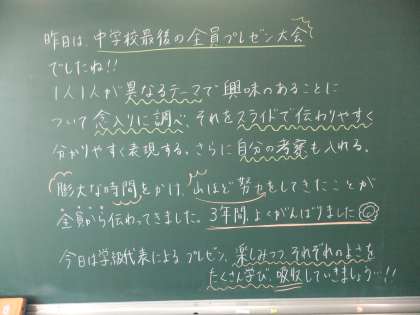 昨日は、中学校最後の全員プレゼン大会
でしたね!!
1人1人が異なるテーマで興味のあることに
ついて念入りに調べ、それをスライドで伝わりやすく
分かりやすく表現する。さらに自分の考察も入れる。
膨大な時間をかけ、山ほど努力をしてきたことが
全員から伝わってきました。3年間、よくがんばりました
今日は学級代表によるプレゼン、楽しみつつ、それぞれのよさを
たくさん学び、吸収していきましょう…!!